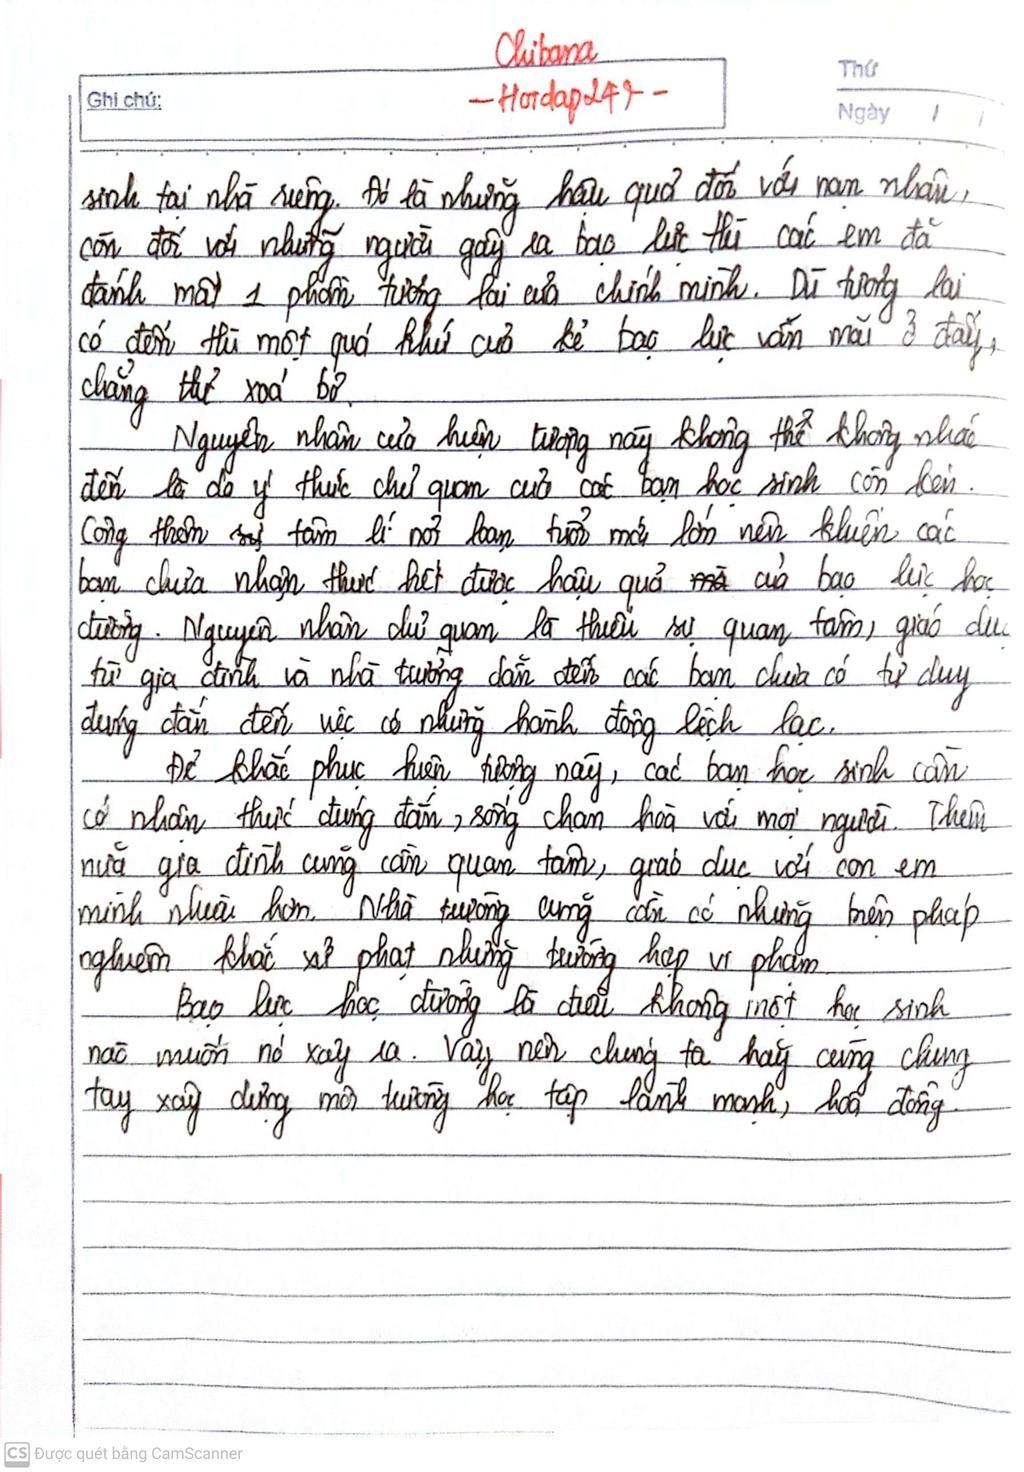 Chibana
Ghi chú:
-Hoidap247-
Thứ
Ngày / /
sinh tại nhà riêng. Đó là những hậu quả đối với nạn nhân,
còn đối với những người gây ra bạo lực thì các em đã
đánh mất 1 phần tương lai của chính mình. Dù tương lai
có đến thì một quá khứ của kẻ bạo lực vẫn mãi ở đấy,
chẳng thể xoá bỏ.
Nguyên nhân của hiện tượng này không thể không nhắc
đến là do ý thức chủ quan của các bạn học sinh còn kém.
Cộng thêm tâm lí nổi loạn tuổi mới lớn nên khiến các
bạn chưa nhận thức hết được hậu quả của bạo lực học
đường. Nguyên nhân chủ quan là thiếu sự quan tâm, giáo dục
từ gia đình và nhà trường dẫn đến các bạn chưa có tư duy
đúng đắn đến việc có những hành động lệch lạc.
Để khắc phục hiện tượng này, các bạn học sinh cần
có nhận thức đúng đắn, sống chan hoà với mọi người. Thêm
nữa gia đình cũng cần quan tâm, giáo dục với con em
mình nhiều hơn. Nhà trường cũng cần có những biện pháp
nghiêm khắc xử phạt những trường hợp vi phạm.
Bạo lực học đường là điều không một học sinh
nào muốn nó xảy ra. Vậy nên chúng ta hãy cùng chung
tay xây dựng môi trường học tập lành mạnh, hoà đồng.
CS Được quét bằng CamScanner